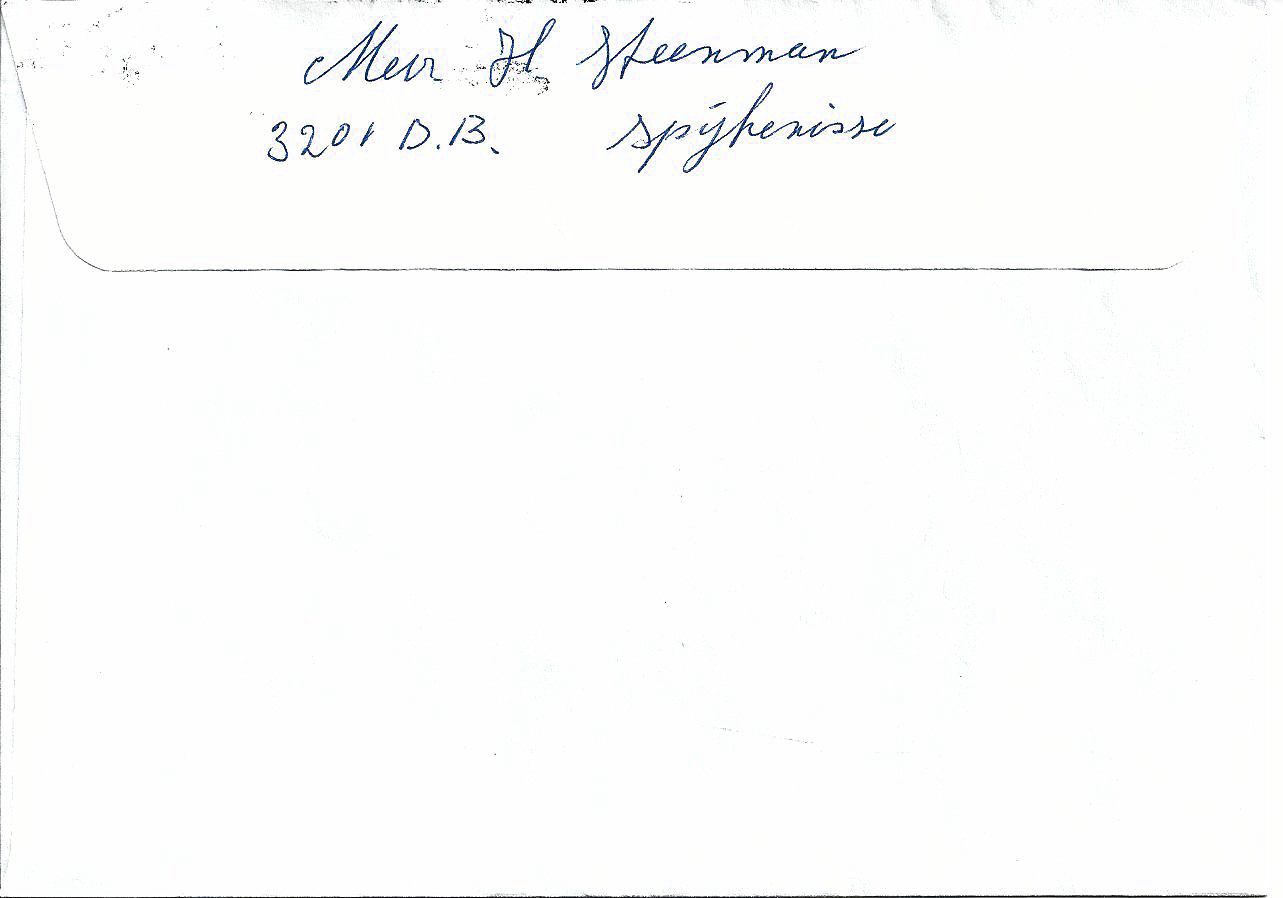 Mevr H Steenman
3201 D.B. Spijkenisse